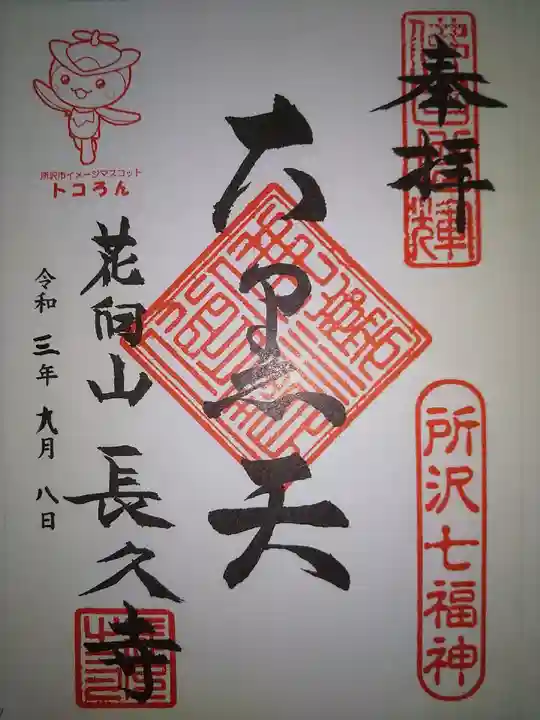 奉拝
所沢七福神
大黒天
花向山 長久寺
令和三年九月八日
所沢市イメージマスコット
トコろん